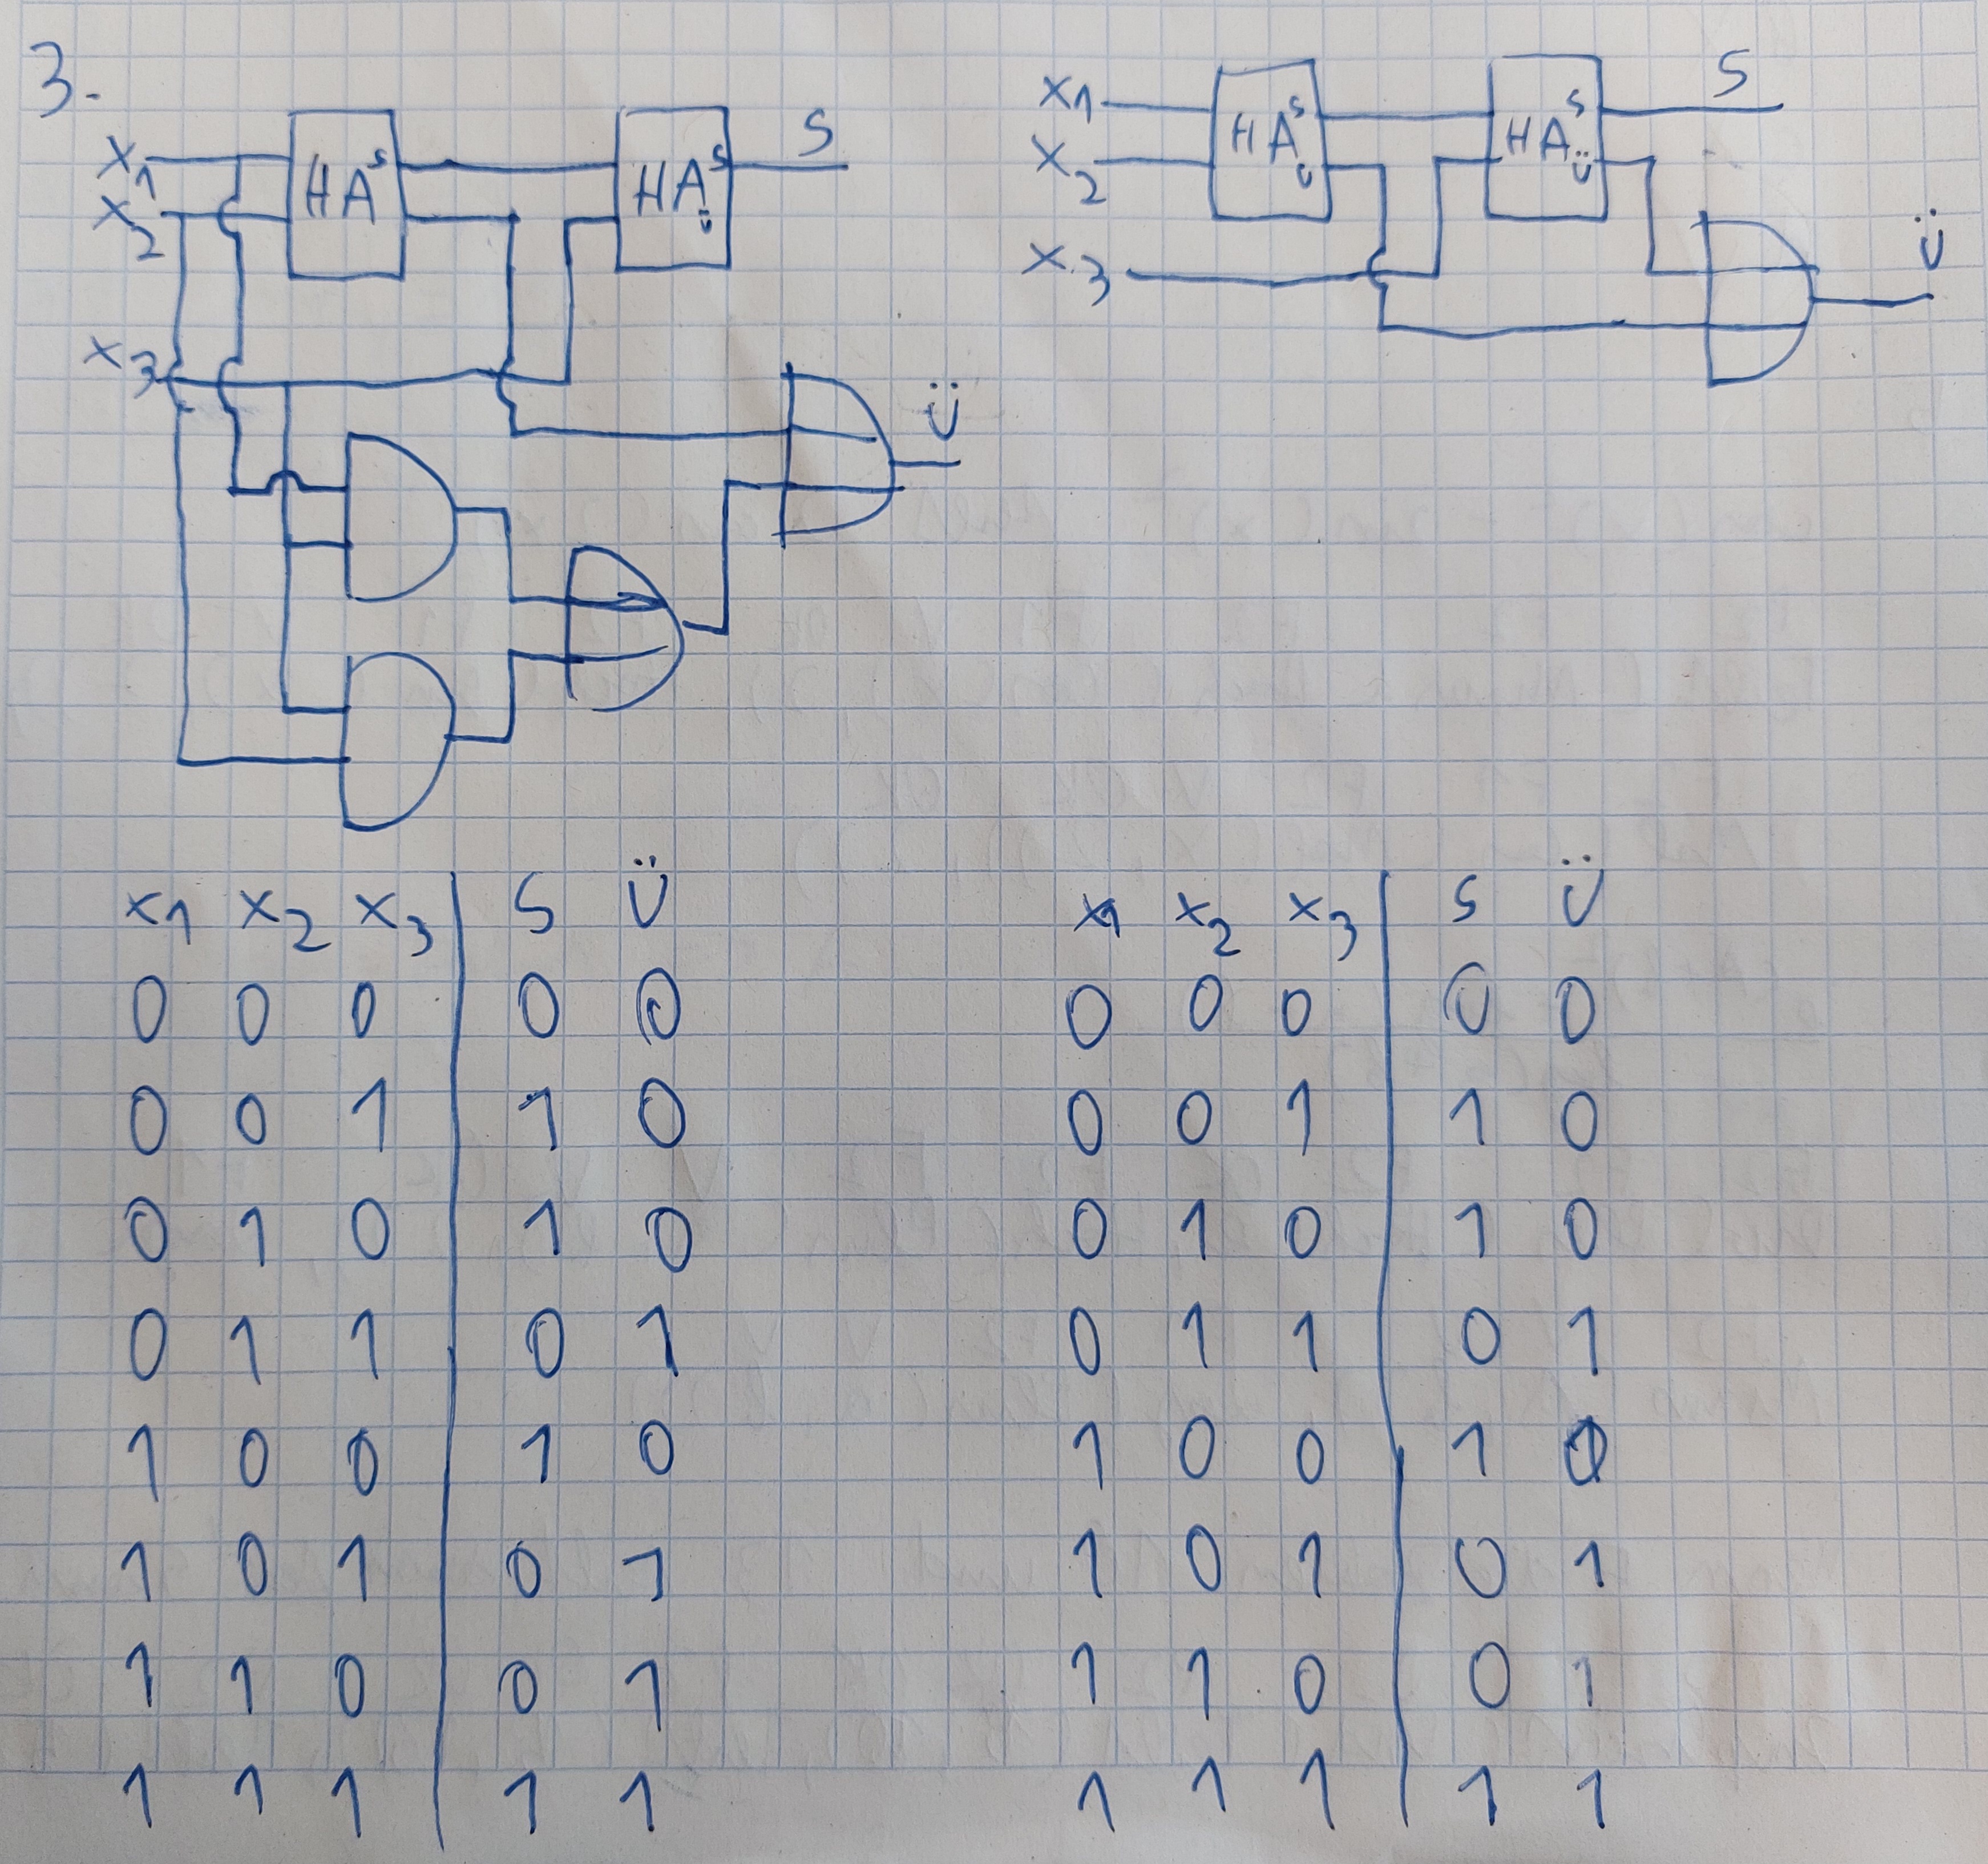 3.
x1
x2
x3
HA s
HA s ü
S
Ü
x1
x2
x3
HA s ü
HA s ü
S
Ü
x1 x2 x3 S Ü
0 0 0 0 0
0 0 1 1 0
0 1 0 1 0
0 1 1 0 1
1 0 0 1 0
1 0 1 0 1
1 1 0 0 1
1 1 1 1 1
x1 x2 x3 S Ü
0 0 0 0 0
0 0 1 1 0
0 1 0 1 0
0 1 1 0 1
1 0 0 1
1 0 1 0 1
1 1 0 0 1
1 1 1 1 1